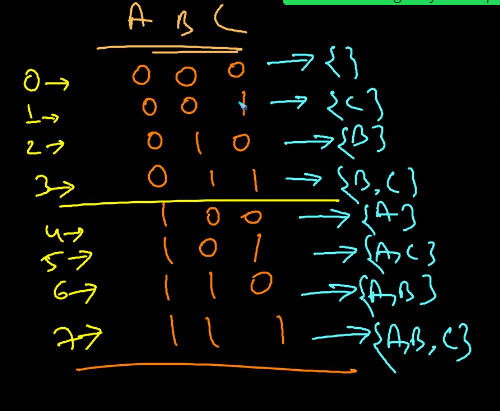 A B C
0→ 0 0 0 → {}
1→ 0 0 1 → {C}
2→ 0 1 0 → {B}
3→ 0 1 1 → {B, C}
4→ 1 0 0 → {A}
5→ 1 0 1 → {A,C}
6→ 1 1 0 → {A,B}
7→ 1 1 1 → {A,B,C}